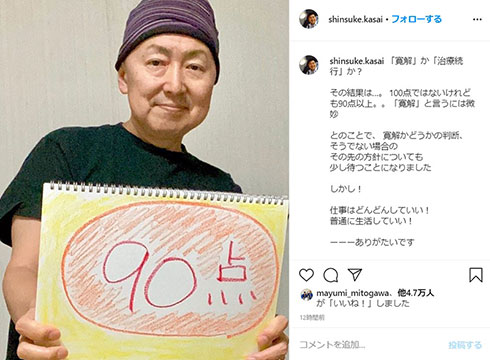 shinsuke.kasai • フォローする
shinsuke.kasai 「寛解」か「治療続
行」か？
その結果は…。 100点ではないけれど
も90点以上。。「寛解」と言うには微
妙
とのことで、 寛解かどうかの判断、
そうでない場合の
その先の方針についても
少し待つことになりました
しかし！
仕事はどんどんしていい！
普通に生活していい！
ーーーありがたいです
90点
mayumi_mitogawa、他4.7万人
が「いいね！」しました
12時間前
コメントを追加...
投稿する